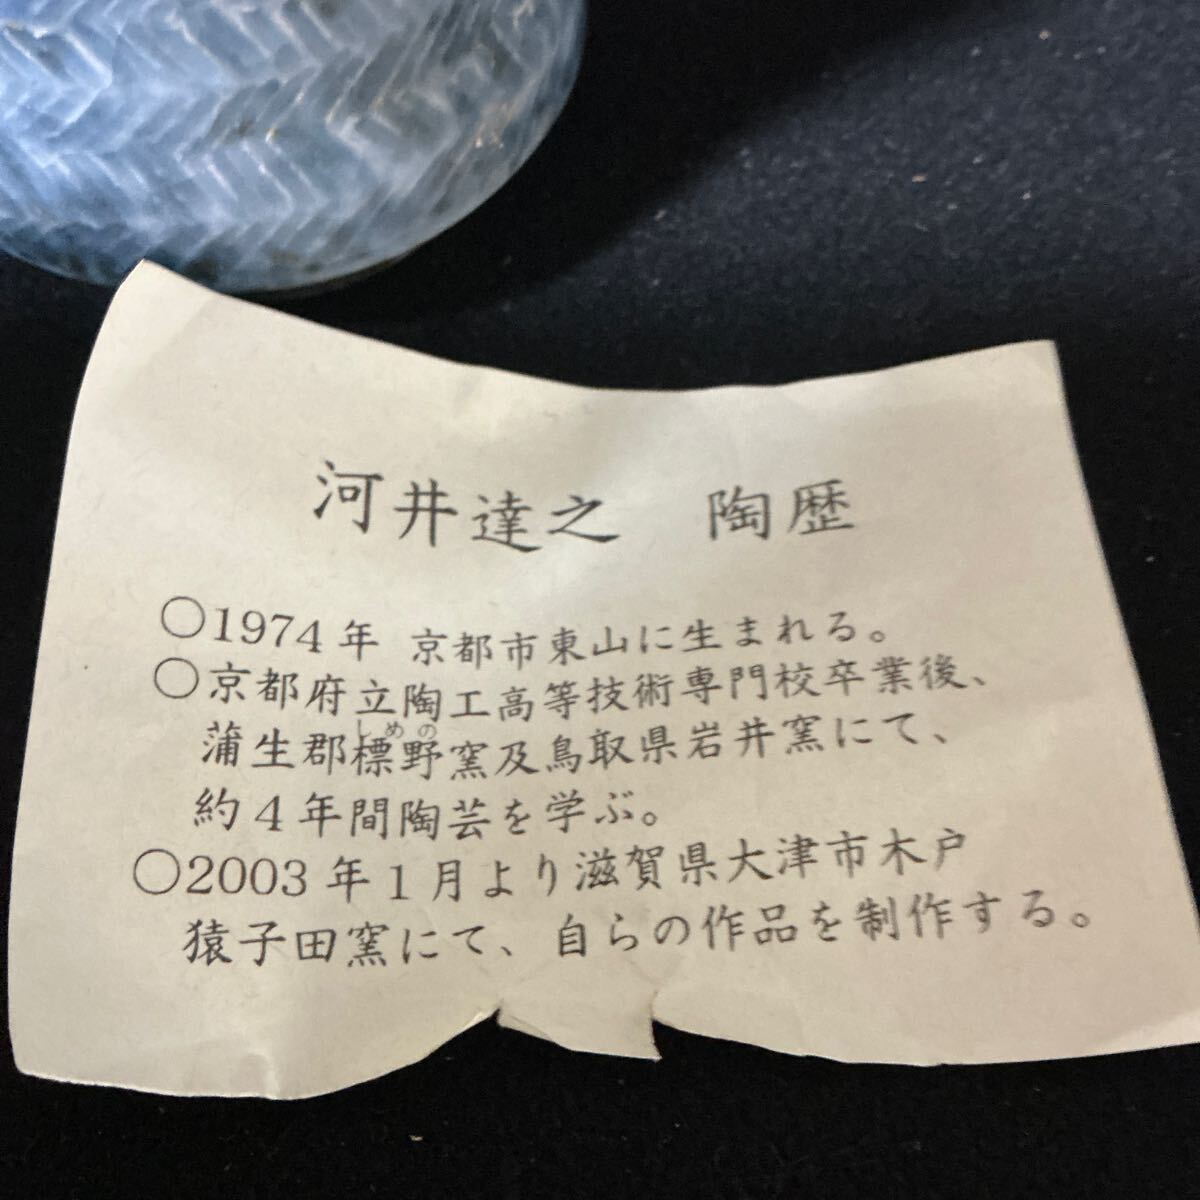 河井達之　陶歴
○1974年 京都市東山に生まれる。
○京都府立陶工高等技術専門校卒業後、
しめの
蒲生郡標野窯及鳥取県岩井窯にて、
約4年間陶芸を学ぶ。
○2003年1月より滋賀県大津市木戸
猿子田窯にて、自らの作品を制作する。